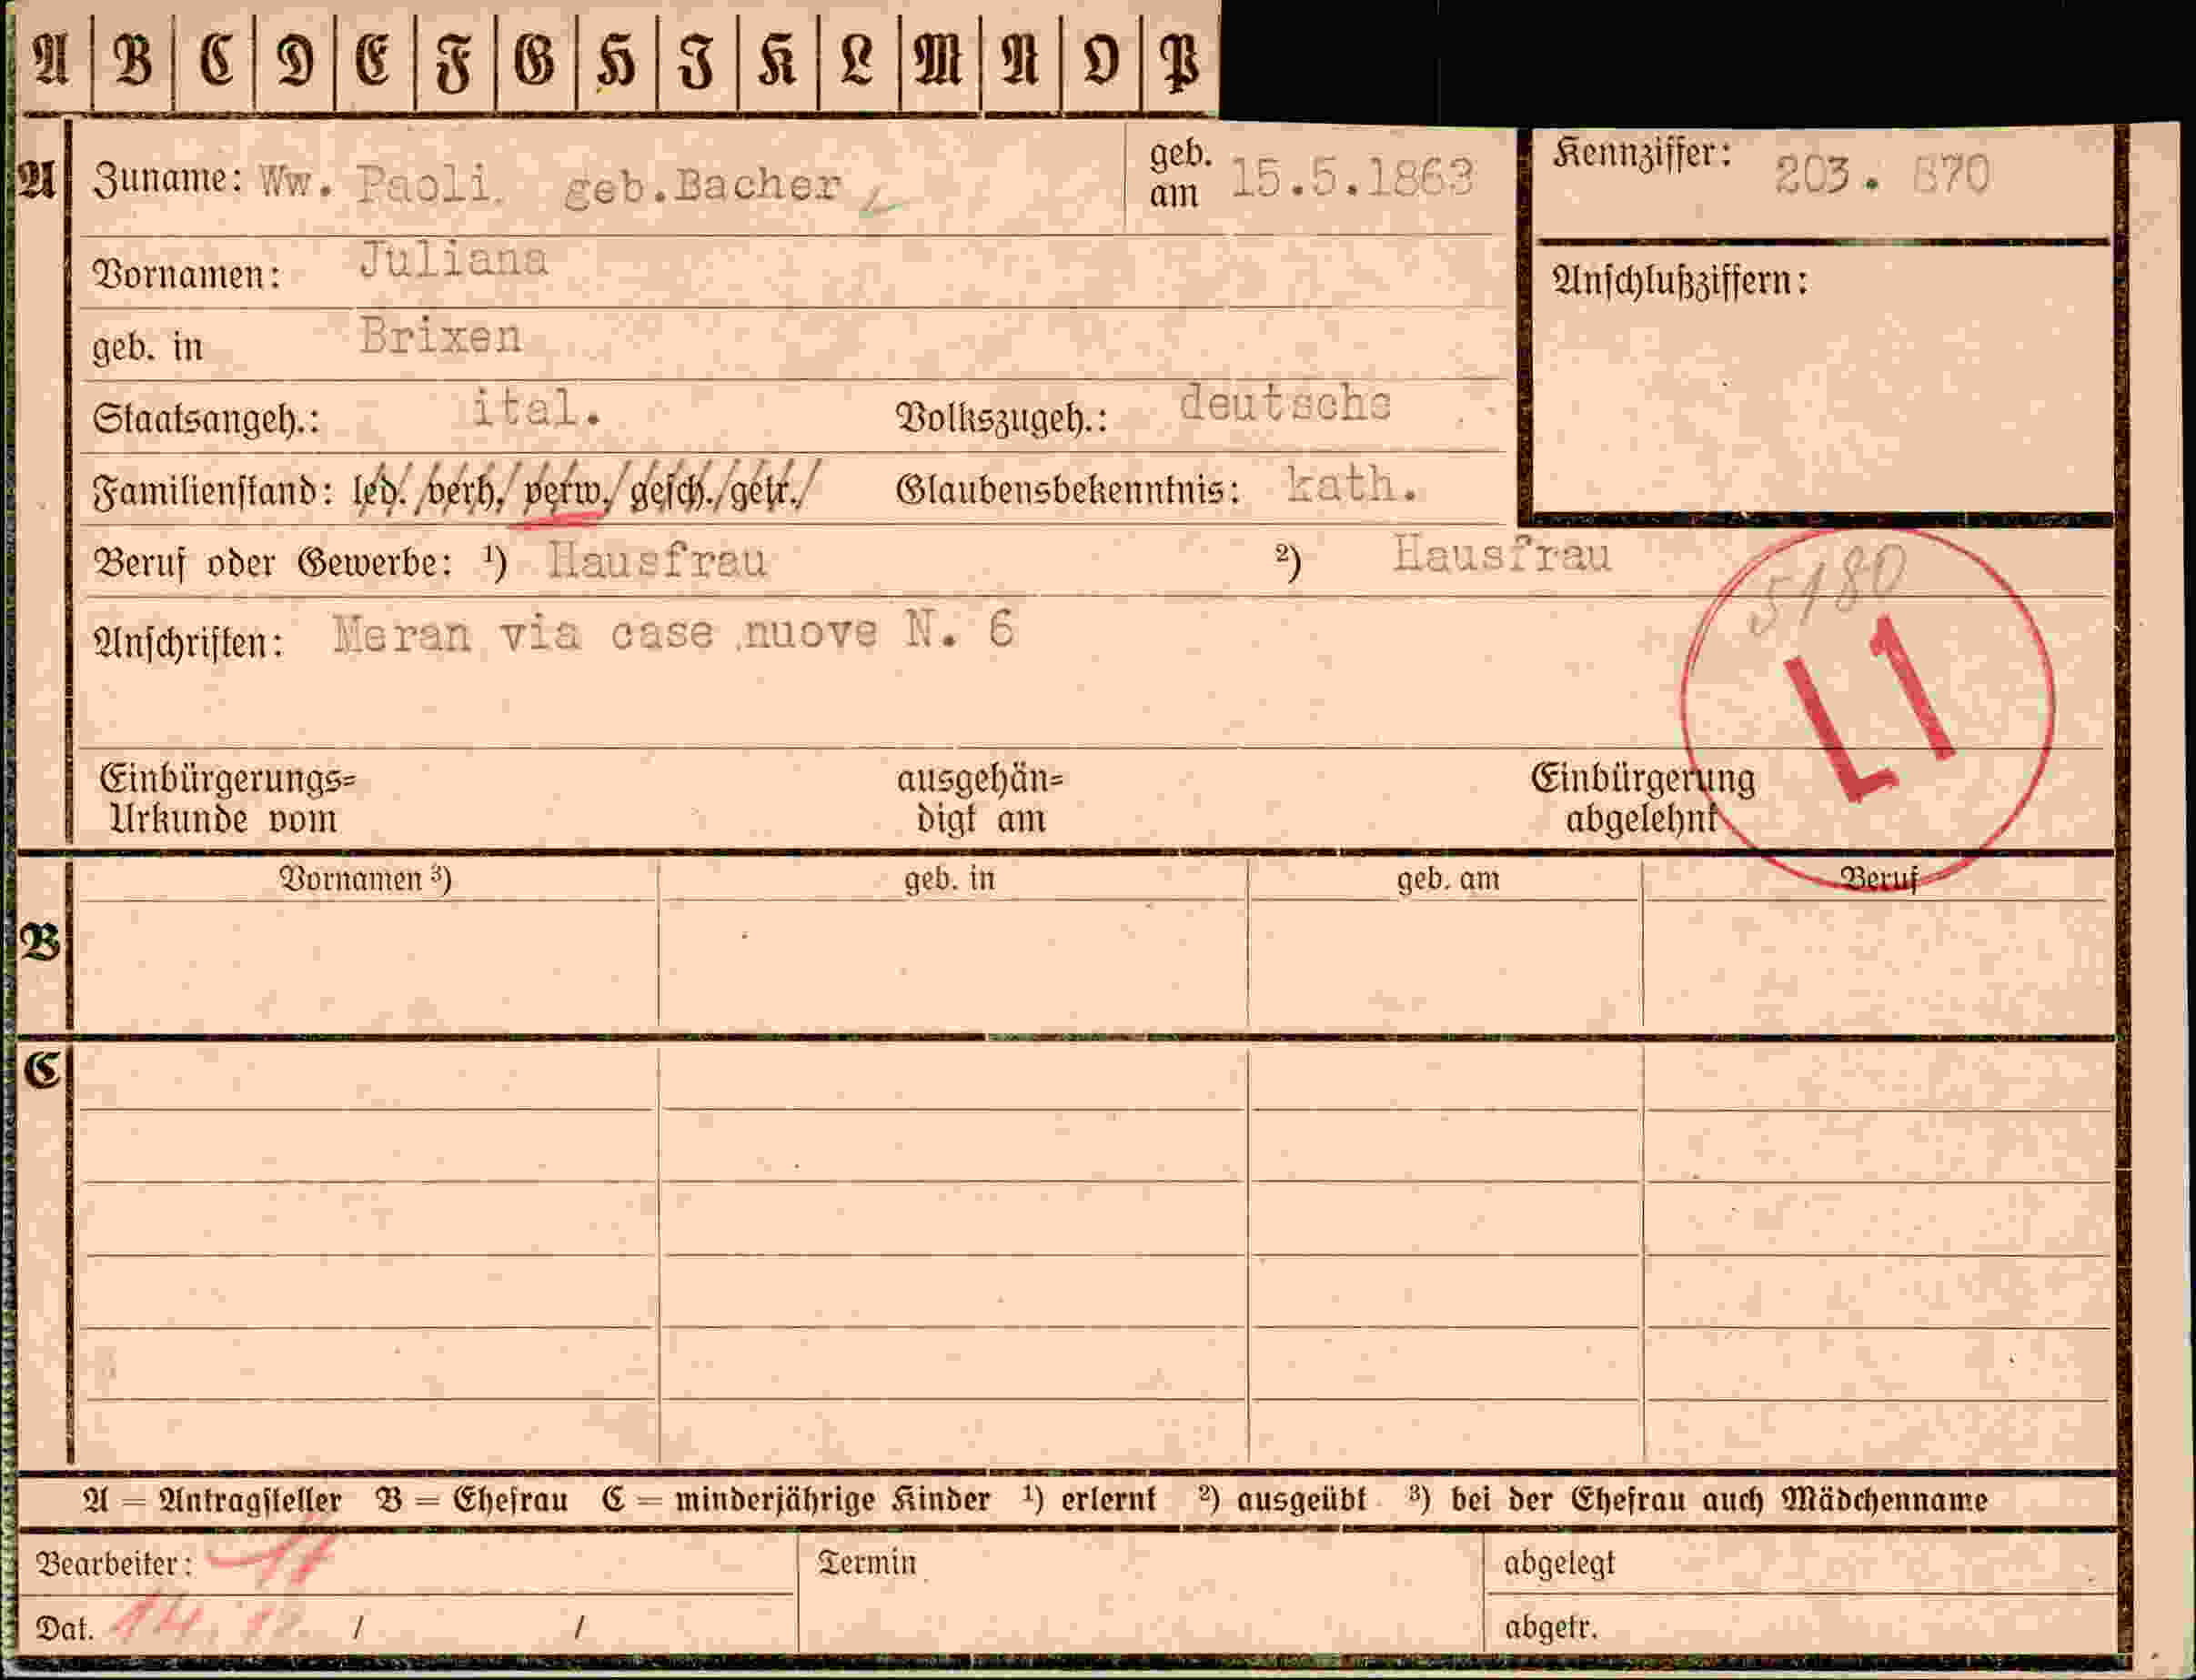 A B C D E F G H I K L M N O P
A Zuname: Ww. Paoli geb.Bacher geb. am 15.5.1863 Kennziffer: 203. 870
Vornamen: Juliana Anschlußziffern:
geb. in Brixen
Staatsangeh.: ital. Volkszugeh.: deutsche
Familienstand: led./verh./verw./gesch./getr./ Glaubensbekenntnis: kath.
Beruf oder Gewerbe: ¹) Hausfrau ²) Hausfrau
5180
Anschriften: Meran via case nuove N. 6
L1
Einbürgerungs= ausgehän= Einbürgerung
Urkunde vom digt am abgelehnt
Vornamen ³) geb. in geb. am Beruf
B
C
A = Antragsteller B = Ehefrau C = minderjährige Kinder ¹) erlernt ²) ausgeübt ³) bei der Ehefrau auch Mädchenname
Bearbeiter: Termin abgelegt
Dat. 14. 12. / / abgetr.